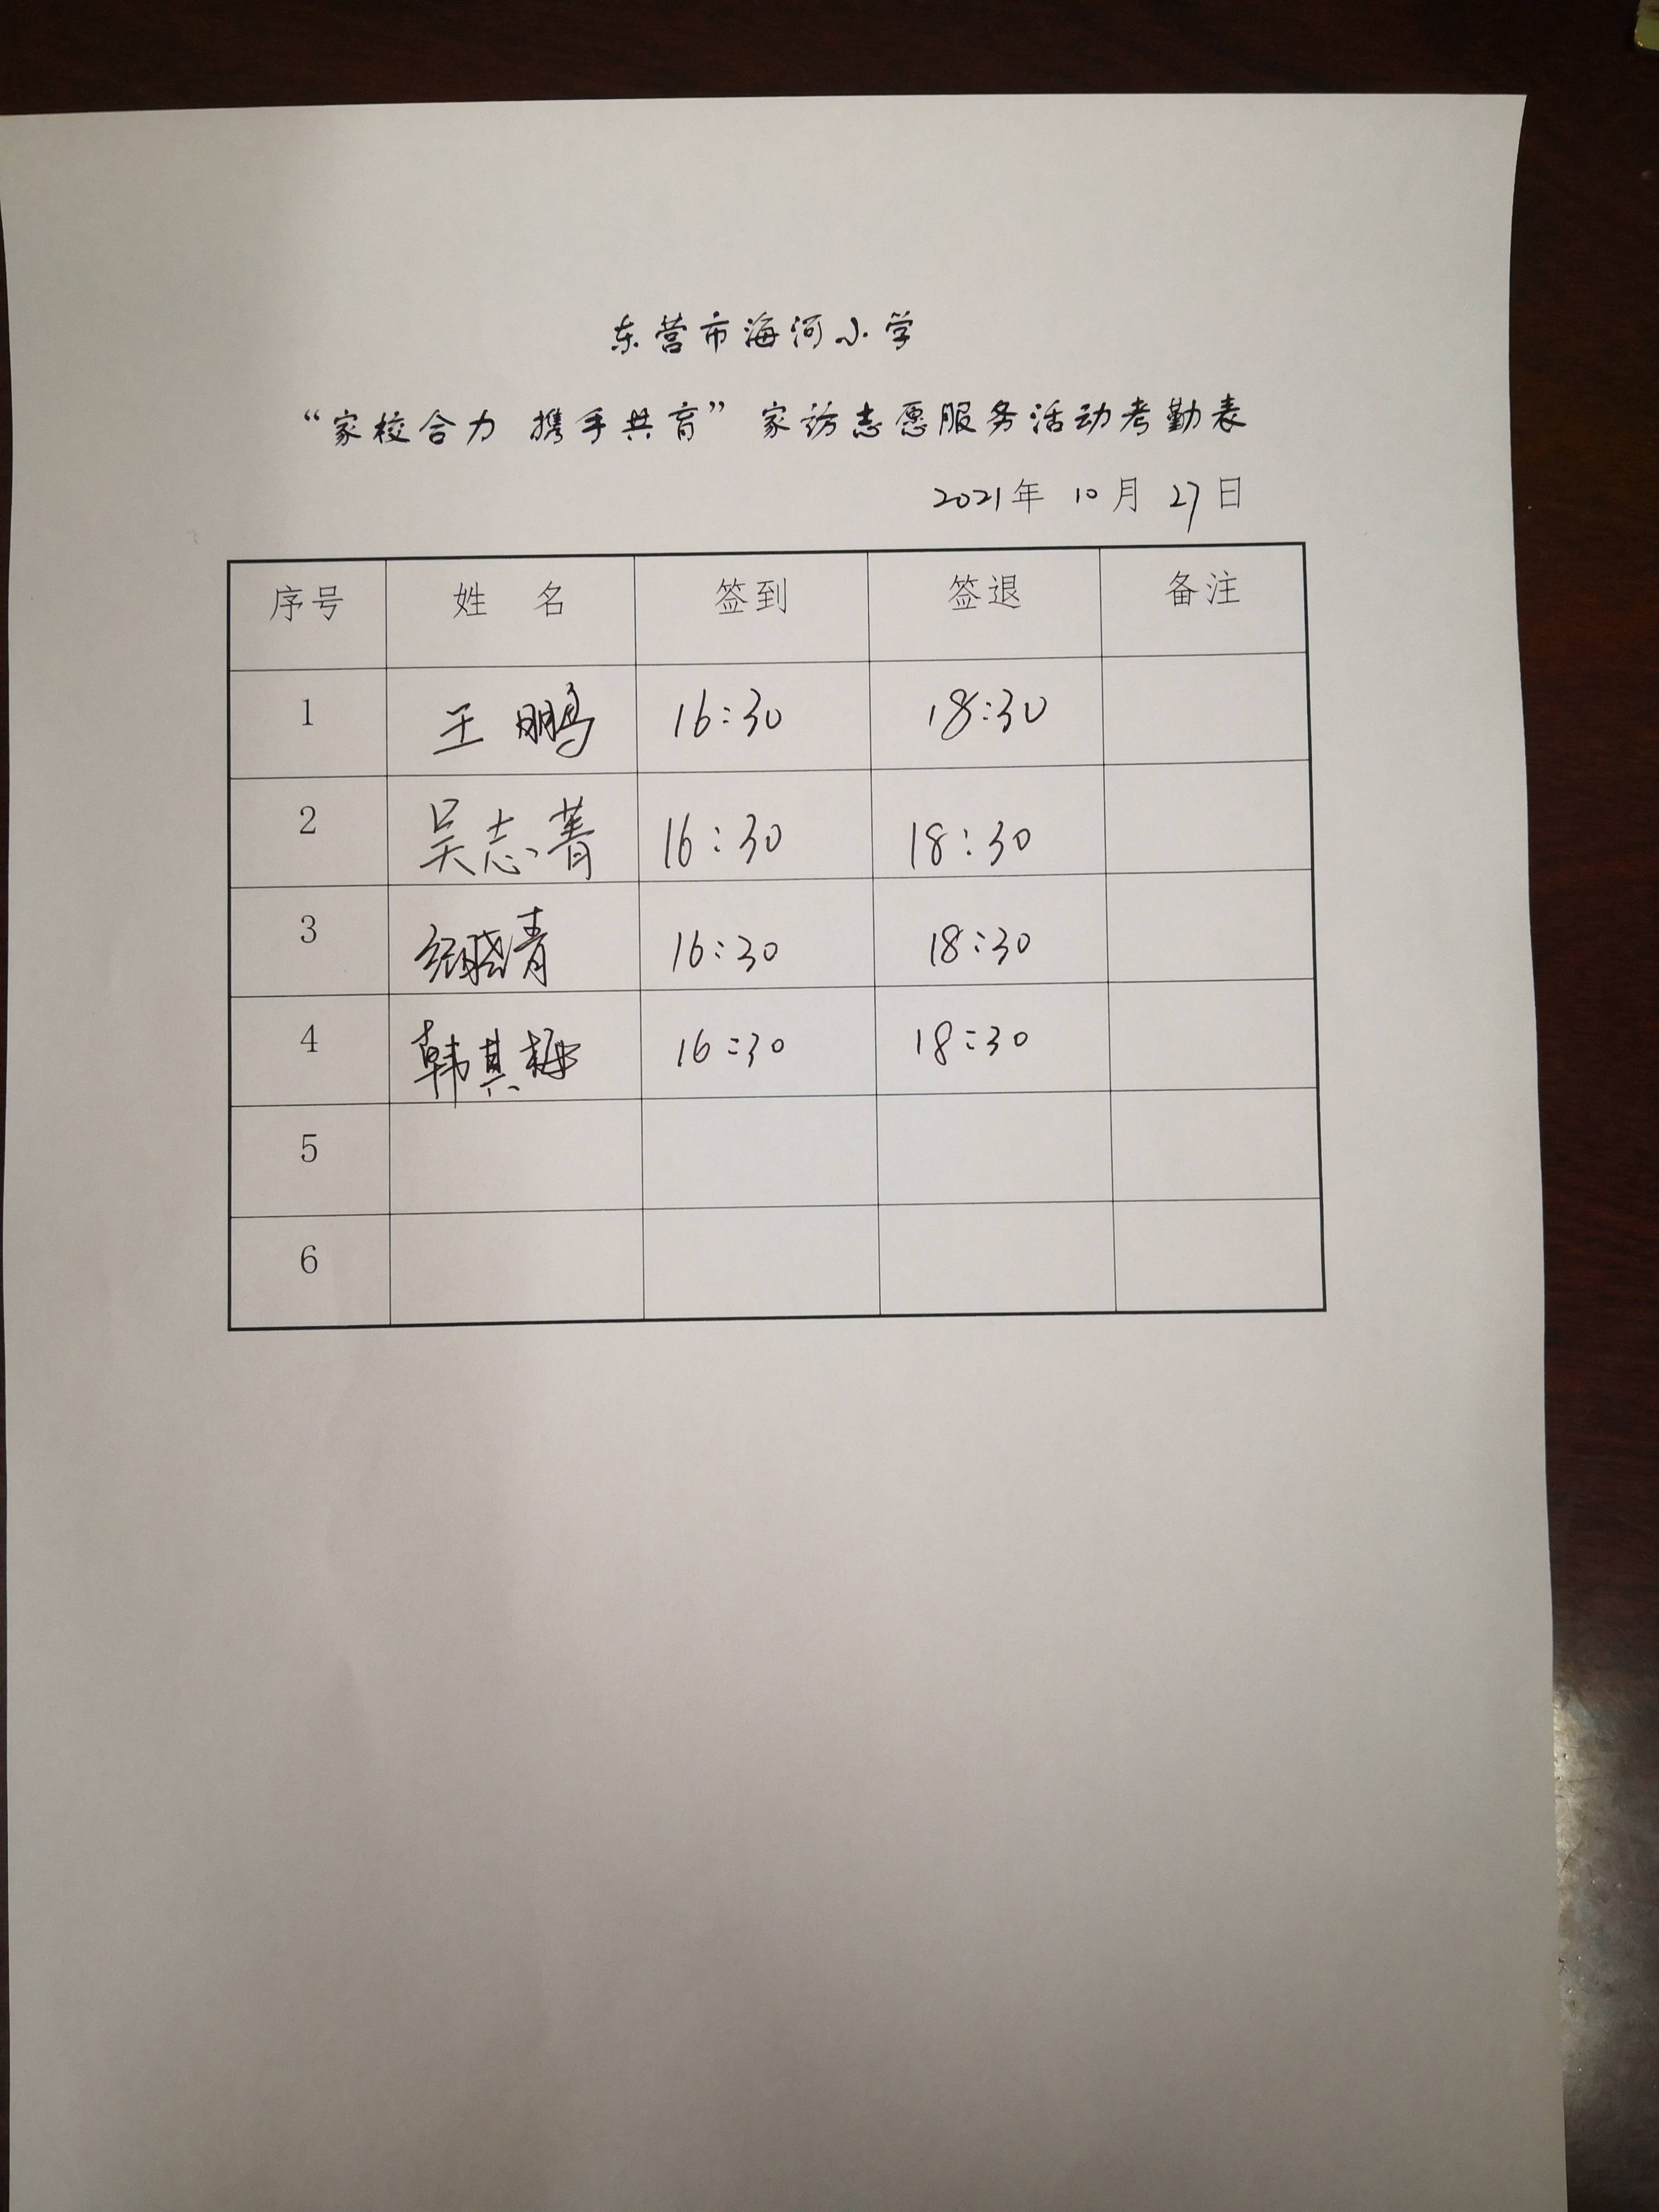 东营市海河小学
“家校合力 携手共育”家访志愿服务活动考勤表
2021年 10月 27日
序号 姓 名 签到 签退 备注
1 王鹏 16:30 18:30
2 吴志菁 16:30 18:30
3 16:30 18:30
4 韩其梅 16:30 18:30
5
6